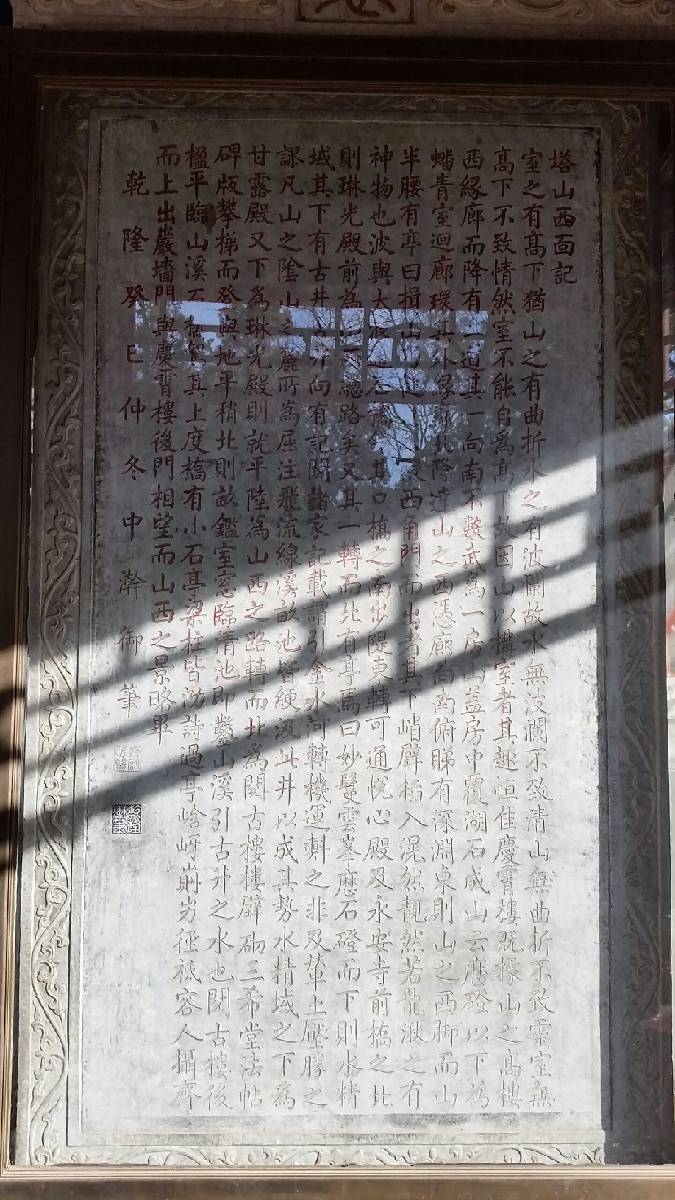 塔山西面記
室之有高下猶山之有曲折水之有波瀾故水無波瀾不致清山無曲折不致靈室無
高下不致情然室不能自為高下故因山以構室者其趣恒佳慶霄樓既據山之高樓
西緣廊而降有二道其一向南不數武為一房山蓋房中覆湖石成山云歷磴以下為
蟠青室迴廊環其外緣廊北降達山之西憑廊向南俯睇有深淵東則山之西脚而山
半腰有亭曰揖山 西角門而出者其下峭壁插入混然靚然若龍湫之有
神物也波與大液通石橋 其口橋之南出隄東轉可通悅心殿及永安寺前橋之北
則琳光殿前為山西總路矣又其一轉而北有亭焉曰妙鬘雲峯歷石磴而下則水精
域其下有古井 向有記闢諸家記載謂引金水河轉機運𣂏之非及輦土壓勝之
謬凡山之陰山之麓所為屈注飛流線溪畝池皆綆汲此井以成其勢水精域之下為
甘露殿又下為琳光殿則就平陸為山西之路轉而北為閱古樓樓壁砌三希堂法帖
碑版攀梯而登與地平稍北則畝鑑室窓臨清池即鑿山溪引古井之水也閱古樓後
楹平臨山溪石橋駕其上度橋有小石亭梁柱皆泐詩過亭崯岈崱屴徑祗容人攝齊
而上出巖墻門與慶霄樓後門相望而山西之景略畢
乾隆癸巳仲冬中澣御筆